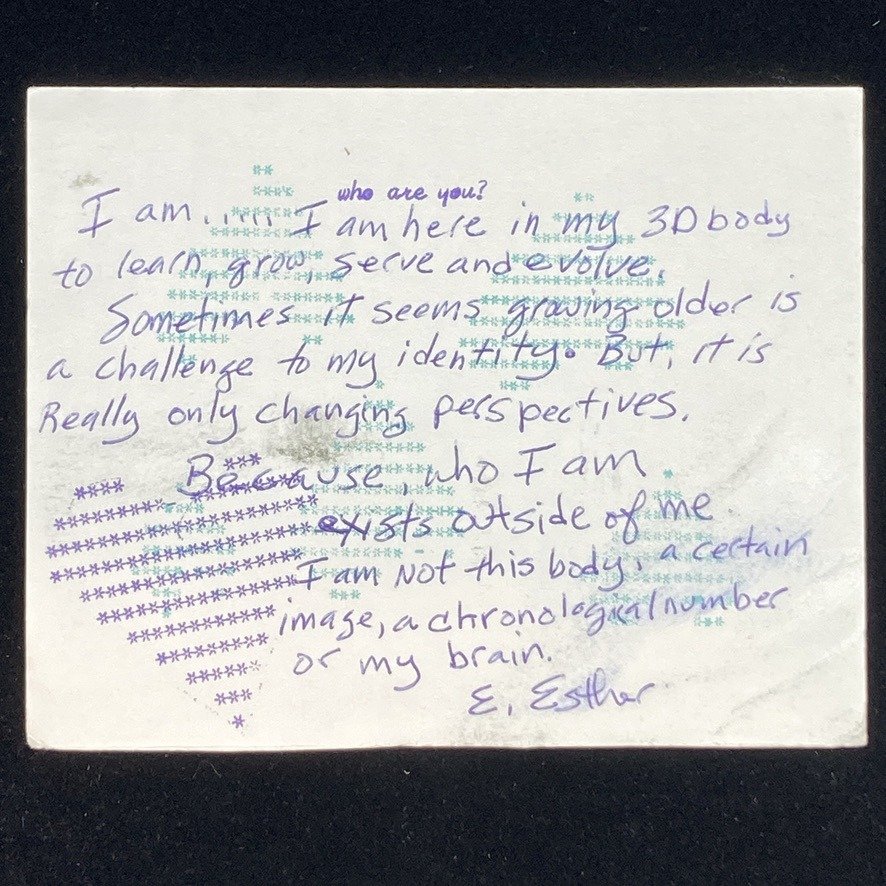 who are you?
I am...... I am here in my 3D body
to learn, grow, serve and evolve.
Sometimes it seems growing older is
a challenge to my identity. But, it is
Really only changing perspectives.
Because, who I am
exists outside of me
I am NOT this body, a certain
image, a chronological number
or my brain.
E. Esther